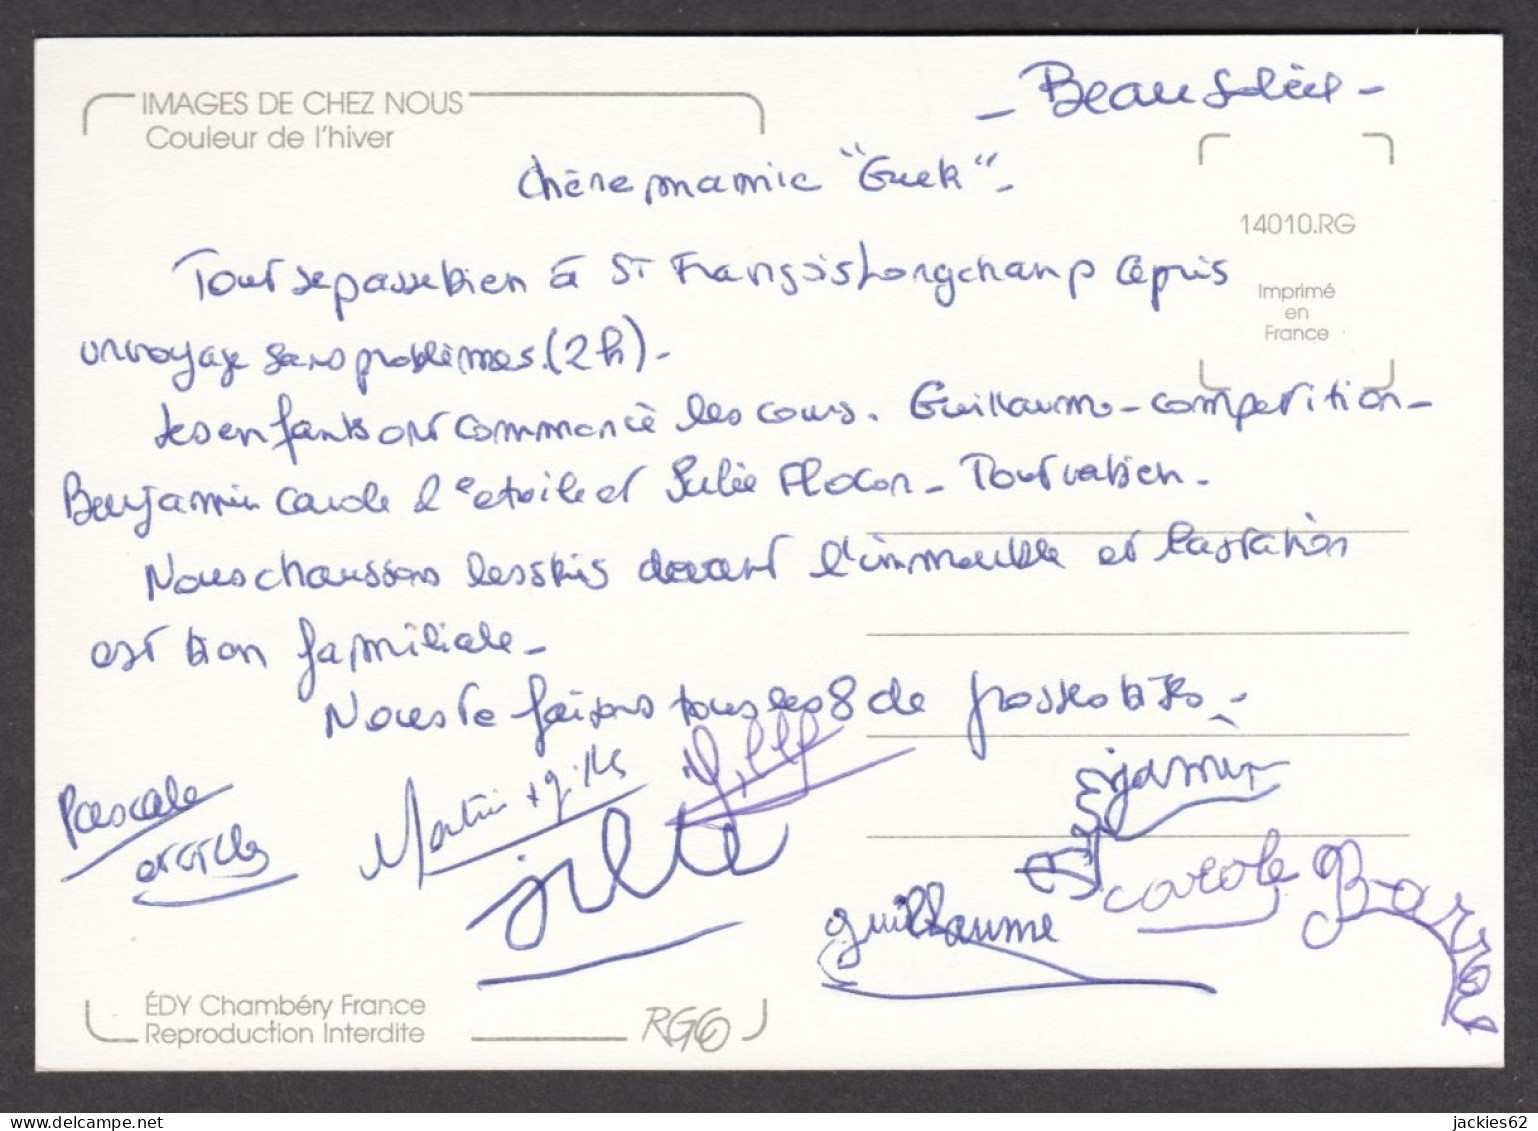 IMAGES DE CHEZ NOUS
Couleur de l'hiver
- Beau Soleil -
chère mamie "Guek" -
14010.RG
Imprimé
en
France
Tout se passe bien à St François Longchamp après
un voyage sans problèmes. (2h) -
Les enfants ont commencé les cours. Guillaume - compétition -
Benjamin Carole l'etoile et Julie Flocon - Tout va bien -
Nous chaussons les skis devant l'immeuble et la station
est bien familiale -
Nous te faisons tous les 8 de grosses bises -
Pascale
Martine + gilles
julie
Benjamin
guillaume
carole
Barre
ÉDY Chambéry France
Reproduction Interdite
RG6
jackies62